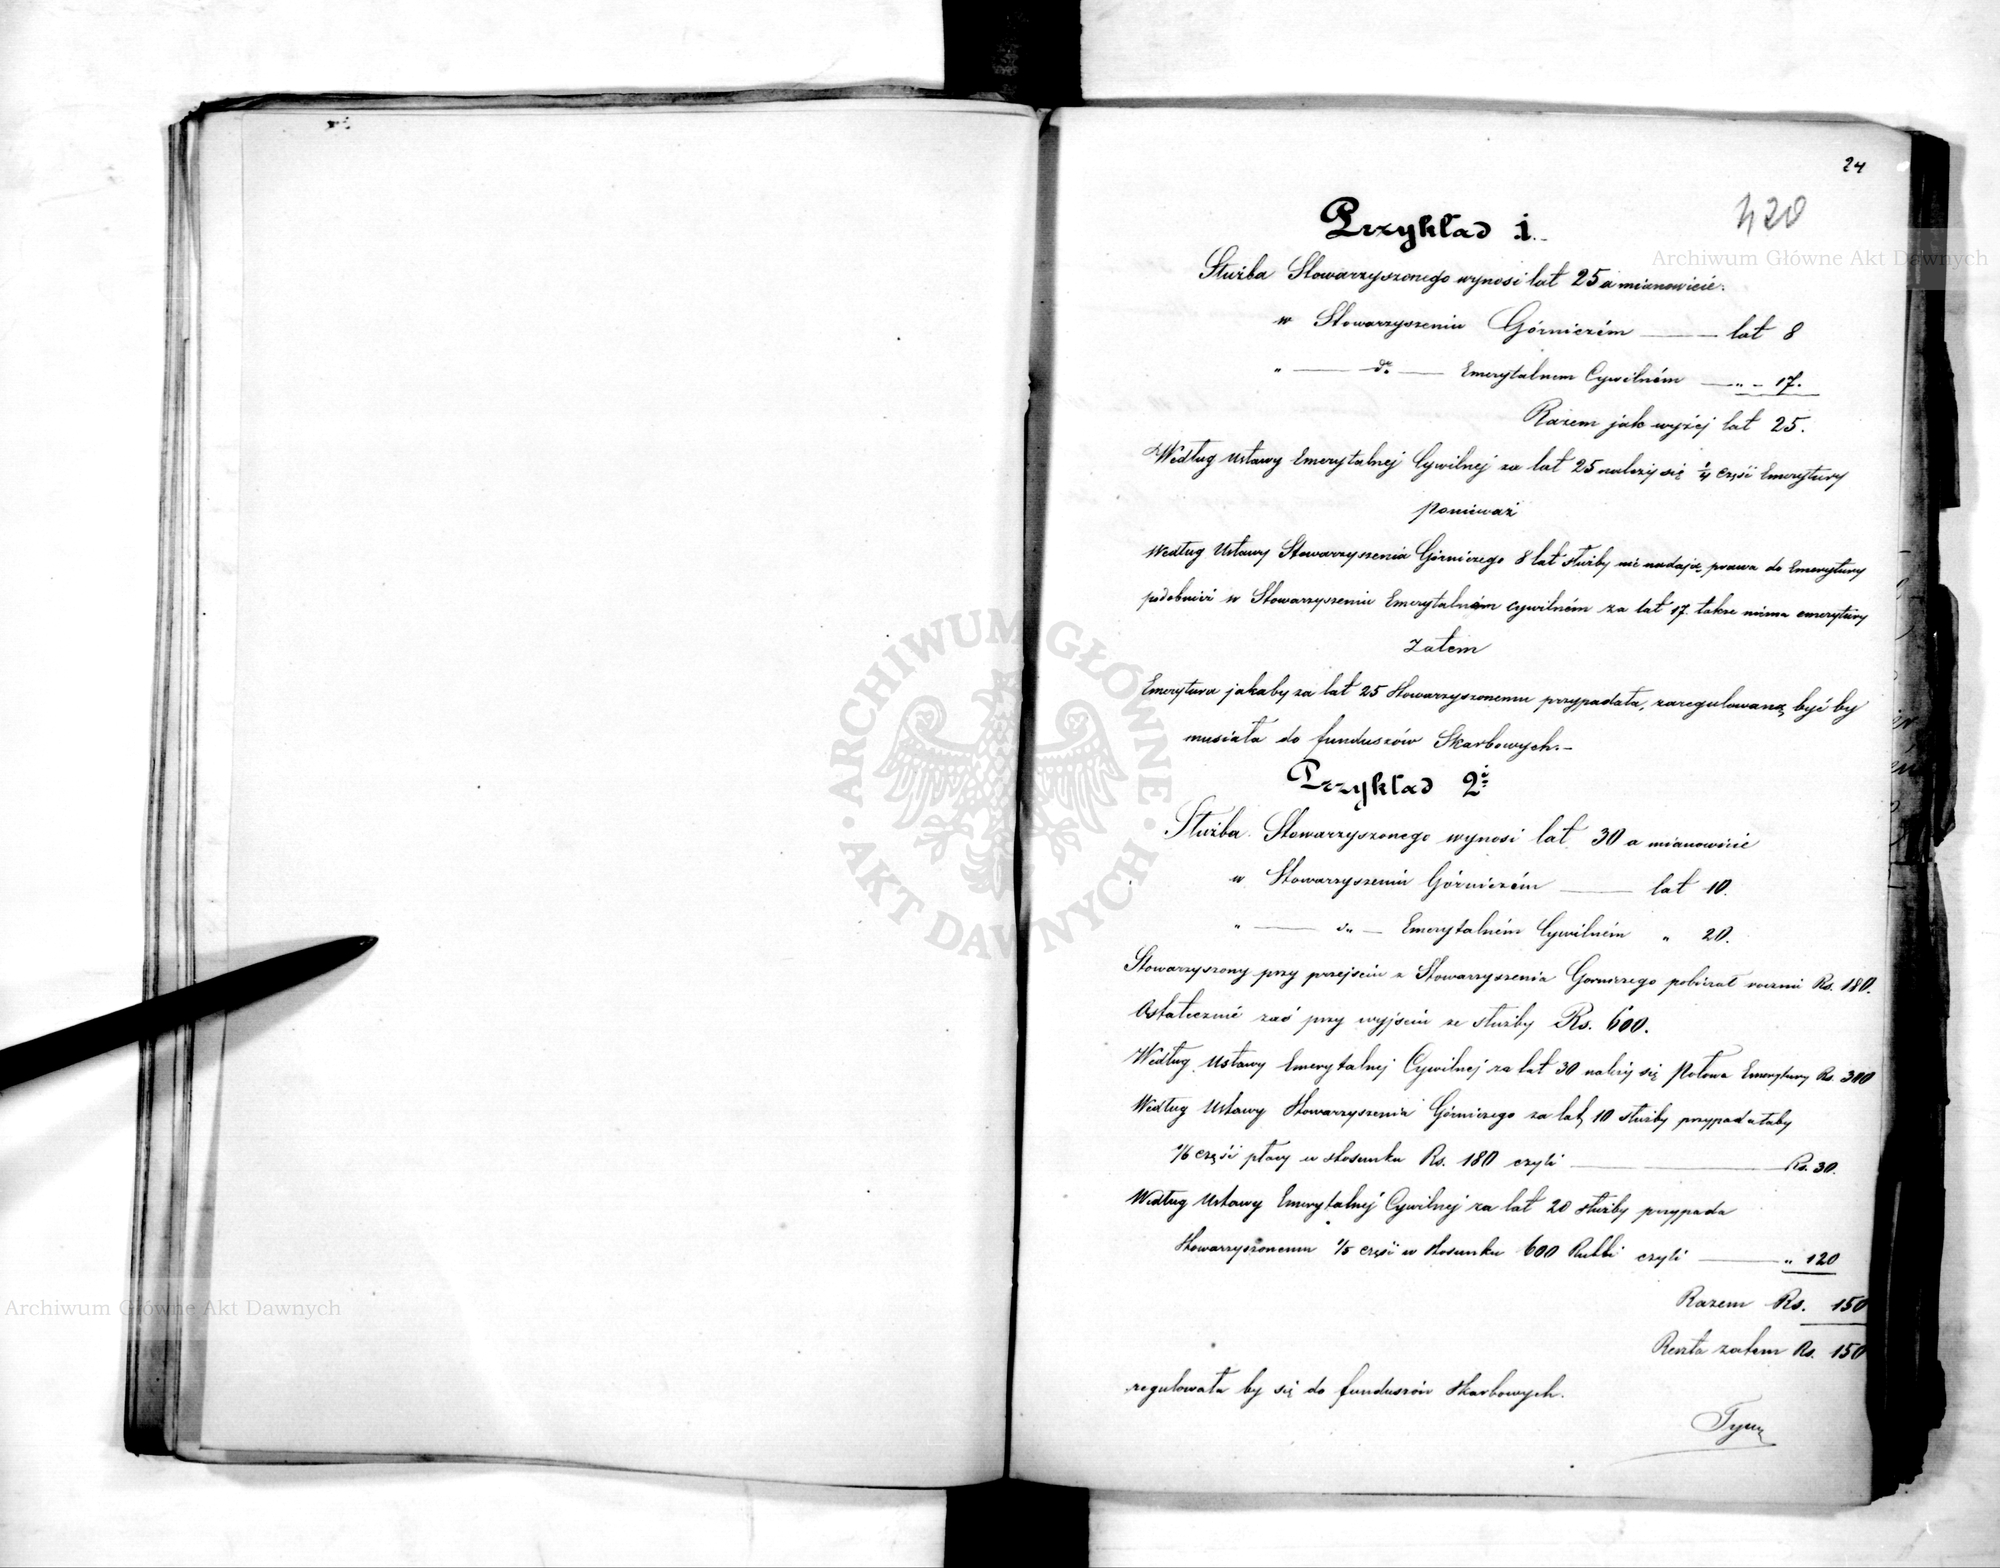 24
420
Przykład 1.
Służba Stowarzyszonego wynosi lat 25 a mianowicie:
w Stowarzyszeniu Górniczém ——— lat 8
" —— do —— Emerytalnem Cywilném — " – 17.
Razem jak wyżej lat 25.
Według ustawy Emerytalnej Cywilnej za lat 25 należy się ¼ częsć Emerytury
ponieważ
Według Ustawy Stowarzyszenia Górniczego 8 lat służby nie nadają prawa do Emerytury
podobnież w Stowarzyszeniu Emerytalném cywilném za lat 17. także niema emerytury
Zatem
Emerytura jakaby za lat 25 Stowarzyszonemu przypadała, zaregulowaną być by
musiała do funduszów Skarbowych.–
Przykład 2i
Służba Stowarzyszonego wynosi lat 30 a mianowicie
w Stowarzyszeniu Górniczém ——— lat 10.
" —— do — Emerytalném Cywilném " 20.
Stowarzyszony przy przejściu z Stowarzyszenia Gorniczego pobierał rocznie Rs. 180.
Ostatecznie zaś przy wyjściu ze służby Rs. 600.
Według Ustawy Emerytalnej Cywilnej za lat 30 należy się Połowa Emerytury Rs. 300
Według Ustawy Stowarzyszenia Górniczego za lat 10 służby przypadałaby
1/6 część płacy w stosunku Rs. 180 czyli ——— Rs. 30.
Według Ustawy Emerytalnej Cywilnej za lat 20 służby przypada
Stowarzyszonemu 1/5 częsć w stosunku 600 Rubli czyli ——— " 120
Razem Rs. 150
Reszta zatem Rs. 150
regulowała by się do funduszów Skarbowych.
Archiwum Główne Akt Dawnych
ARCHIWUM GŁÓWNE AKT DAWNYCH
Archiwum Główne Akt Dawnych